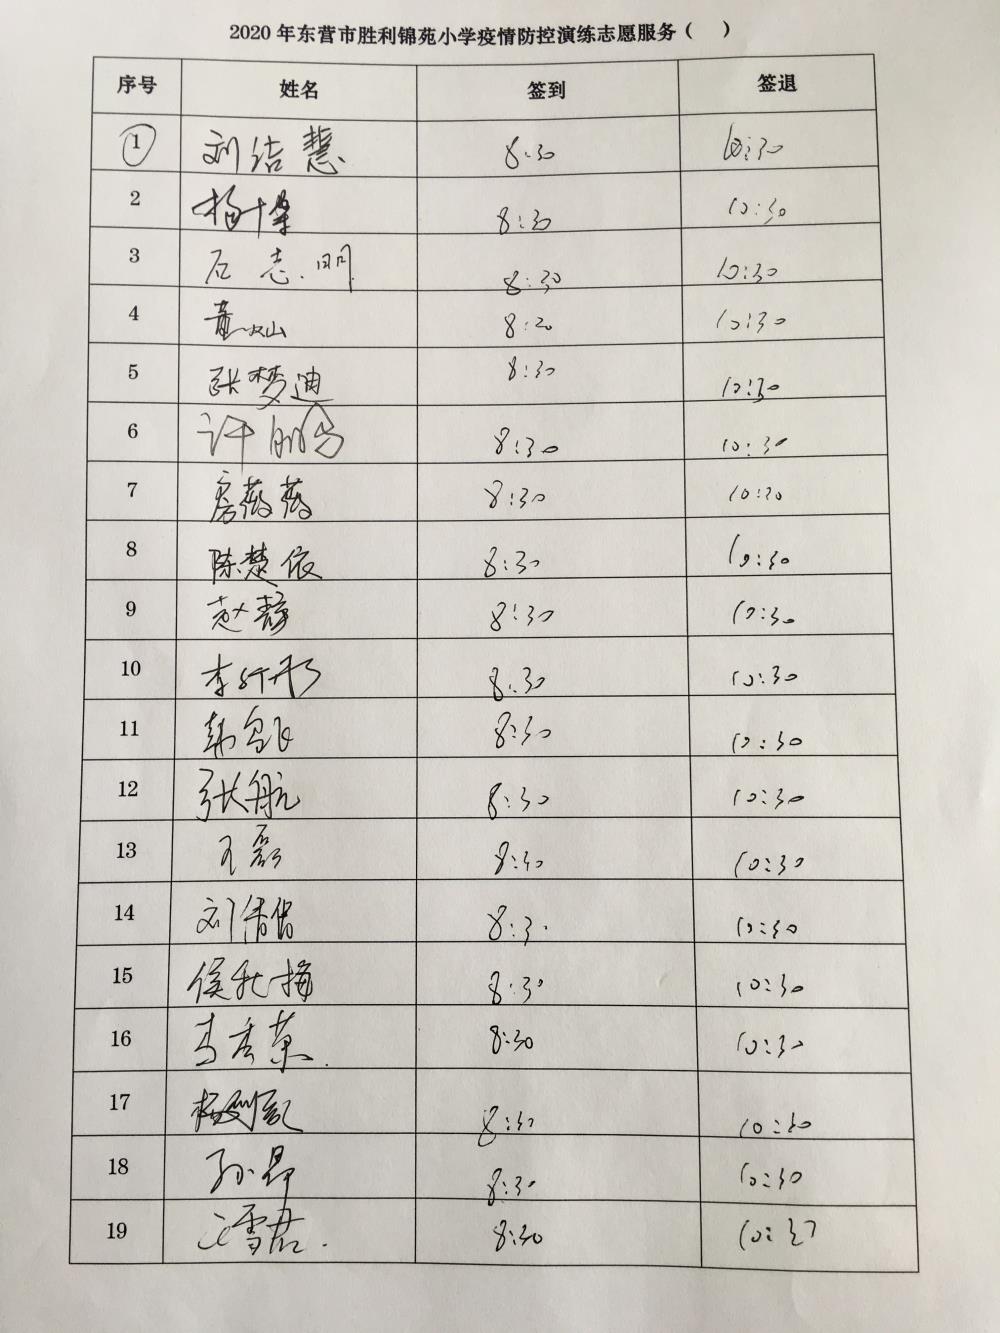 2020年东营市胜利锦苑小学疫情防控演练志愿服务（ ）
序号 姓名 签到 签退
1 刘洁慧 8:30 10:30
2 杨 8:30 10:30
3 石志明 8:30 10:30
4 8:20 10:30
5 张梦迪 8:30 10:30
6 许 8:30 10:30
7 房薇薇 8:30 10:20
8 陈楚依 8:30 10:30
9 赵静 8:30 10:30
10 李 8:30 10:30
11 韩 8:30 10:30
12 张航 8:30 10:30
13 王磊 8:30 10:30
14 刘倩倩 8:30 10:30
15 侯秋梅 8:30 10:30
16 李秀荣 8:30 10:30
17 杨 8:30 10:30
18 孙昂 8:30 10:30
19 雪君 8:30 10:37